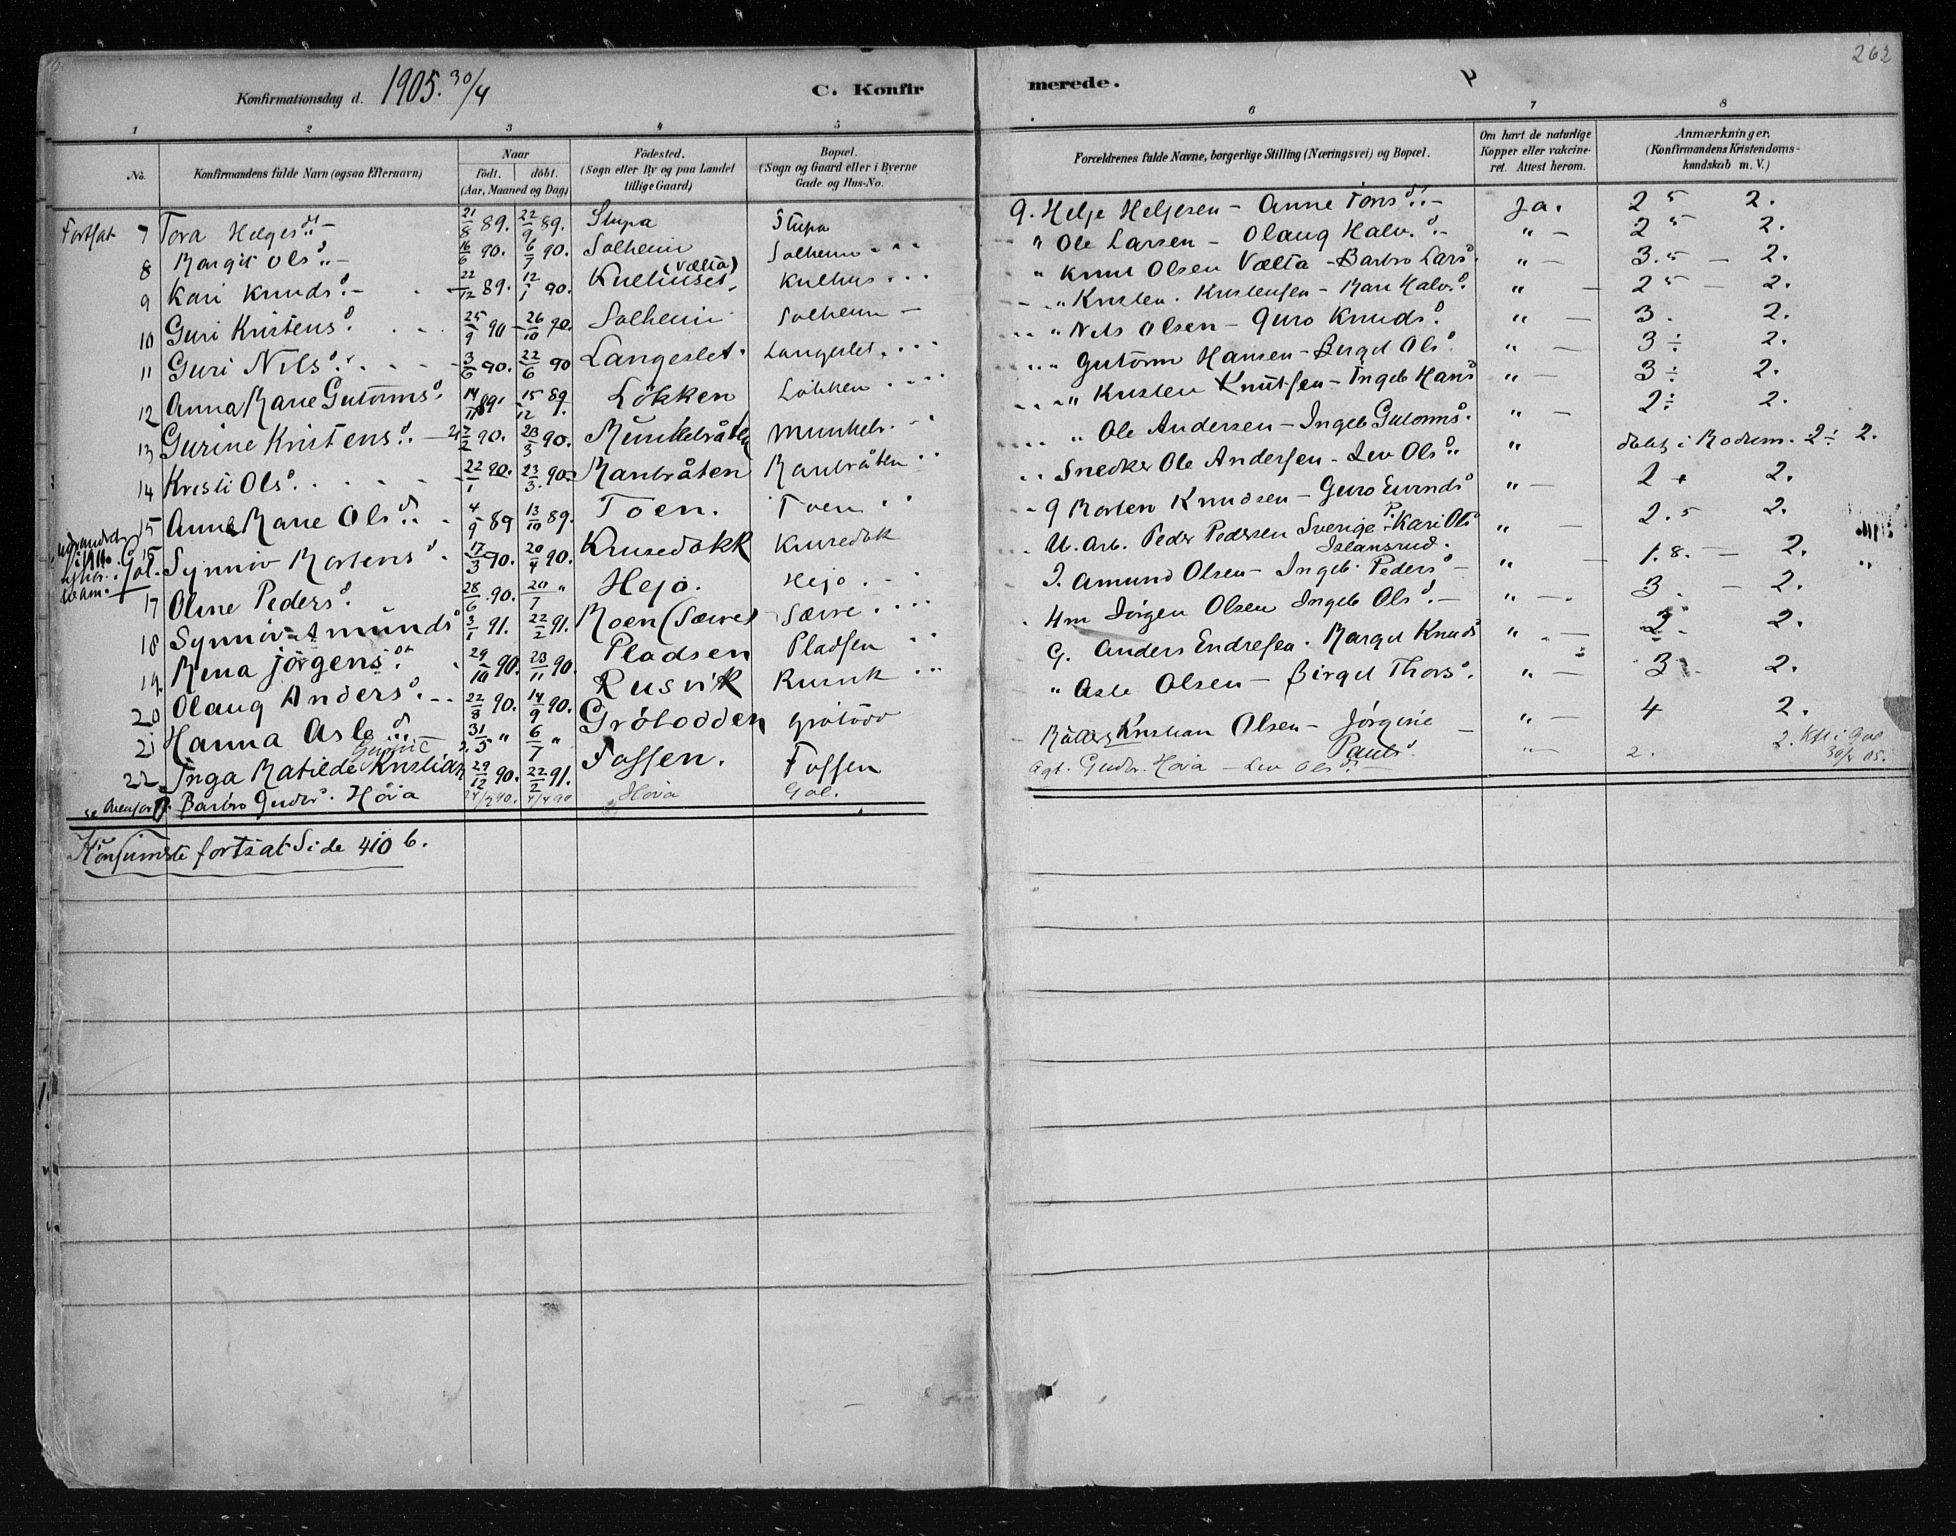 262
Konfirmationsdag d. 1905. 30/4 C. Konfir merede.
1 2 3 4 5 6 7 8
No. Konfirmandens fulde Navn (ogsaa Efternavn) Naar födt. döbt. (Aar, Maaned og Dag) Födested. (Sogn eller By og paa Landet tillige Gaard) Bopæl. (Sogn og Gaard eller i Byerne Gade og Hus-No. Forældrenes fulde Navne, borgerlige Stilling (Næringsvei) og Bopæl. Om havt de naturlige Kopper eller vakcineret. Attest herom. Anmærkninger, (Konfirmandens Kristendomskundskab m. V.)
Fortsat 7 Tora Helgesd. 21/8 89. 22/9 89. Stupa Stupa G. Helge Helgesen - Anne Torsd. Ja. 2 5 2.
8 Margit Olsd. 16/6 90. 6/7 90. Solheim Solheim " Ole Larsen - Olaug Halv.d. " 2 5 2.
9 Kari Knudsd. 22/12 89. 12/1 90. Kulhuset (Vælta) Kulhus " Knut Olsen Vælta - Barbro Larsd. " 3.5 - 2.
10 Guri Kristensd. 25/9 90 26/10 90. Solheim Solheim " Kristen Kristensen - Mari Halv.d. " 2 5 - 2.
11 Guri Nilsd. 3/6 90. 22/6 90 Langeslet. Langeslet. " Nils Olsen - Guro Knudsd. " 3. 2.
12 Anna Marie Gutormsd. 14/11 89 15/12 89. Lökken Lökken " Gutorm Hansen - Birgit Olsd. " 3 ÷ 2.
13 Gurine Kristensd. 2/2 90. 23/3 90. Munkebråten Munkebr. " Kristen Knutsen - Ingeb Hansd " 3 ÷ 2.
14 Kristi Olsd. 22/1 90. 23/3 90. Manbråten Manbråten " Ole Andersen - Ingeb Gutormsd. " 2 ÷ 2.
15 Anne Marie Olsd. 4/9 89 13/10 89. Toen. Toen Snedker Ole Andersen - Liv Olsd. " døbt i Modum. 2 ÷ 2.
16 Synnöv Mortensd. 17/3 90. 20/4 90. Knusedokk Knusedok G Morten Knudsen - Guro Eivindsd " 2 + 2.
17 Oline Pedersd. 28/6 90. 20/7 " Hejo. Hejo U. Arb. Peder Pedersen Sverige P. - Kari Olsd Islansrud. " 2.5 2.
18 Synnöv Amundsd 3/1 91. 22/2 91. Moen (Sævre) Sævre I. Amund Olsen - Ingeb. Pedersd " 1.8. - 2.
19 Mina Jörgensd. 29/10 90. 23/11 90. Pladsen Pladsen Hm Jörgen Olsen Ingeb Olsd. " 3. - 2.
20 Olaug Andersd. 22/8 90. 14/9 90. Rusvik Rusvik G. Anders Endresen. Margit Knudsd " 2. 2.
21 Hanna Asled. 31/5 " 6/7 " Grötodden Grötodd " Asle Olsen - Birgit Thorsd. " 3 2.
22 Inga Matilde Kristians 29/12 90. 22/2 91. Fossen. Fossen Kristian Olsen - Jörgine Paulsd. " 4 2.
Barbro Gudbr. Höva Höva Gol. Agt. Gudbr. Höva - Liv Olsd. " 2. 2. Kft i Gol 30/4 05.
Konfirmerte fortsat Side 410 b.